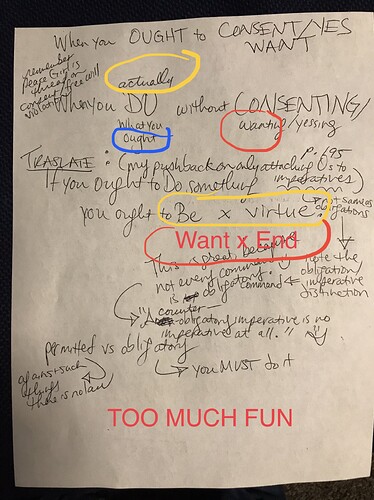 When you OUGHT to CONSENT/YES
WANT
remember
Peace Girl is
threat on
consent/free will
violation
actually
When you DO without CONSENTING/
what you
ought
wanting/yessing
TRASLATE: (my pushback on only attaching Os to imperatives) p. 195
If you ought to Do something
you ought to Be x virtue.
Want x End
obligations
This is great because
not every command
is obligatory.
note the
obligation/
imperative
command
distinction
counter
"A obligatory imperative is no
imperative at all."
permitted vs obligatory
you MUST do it
against such
things
there is no law
TOO MUCH FUN